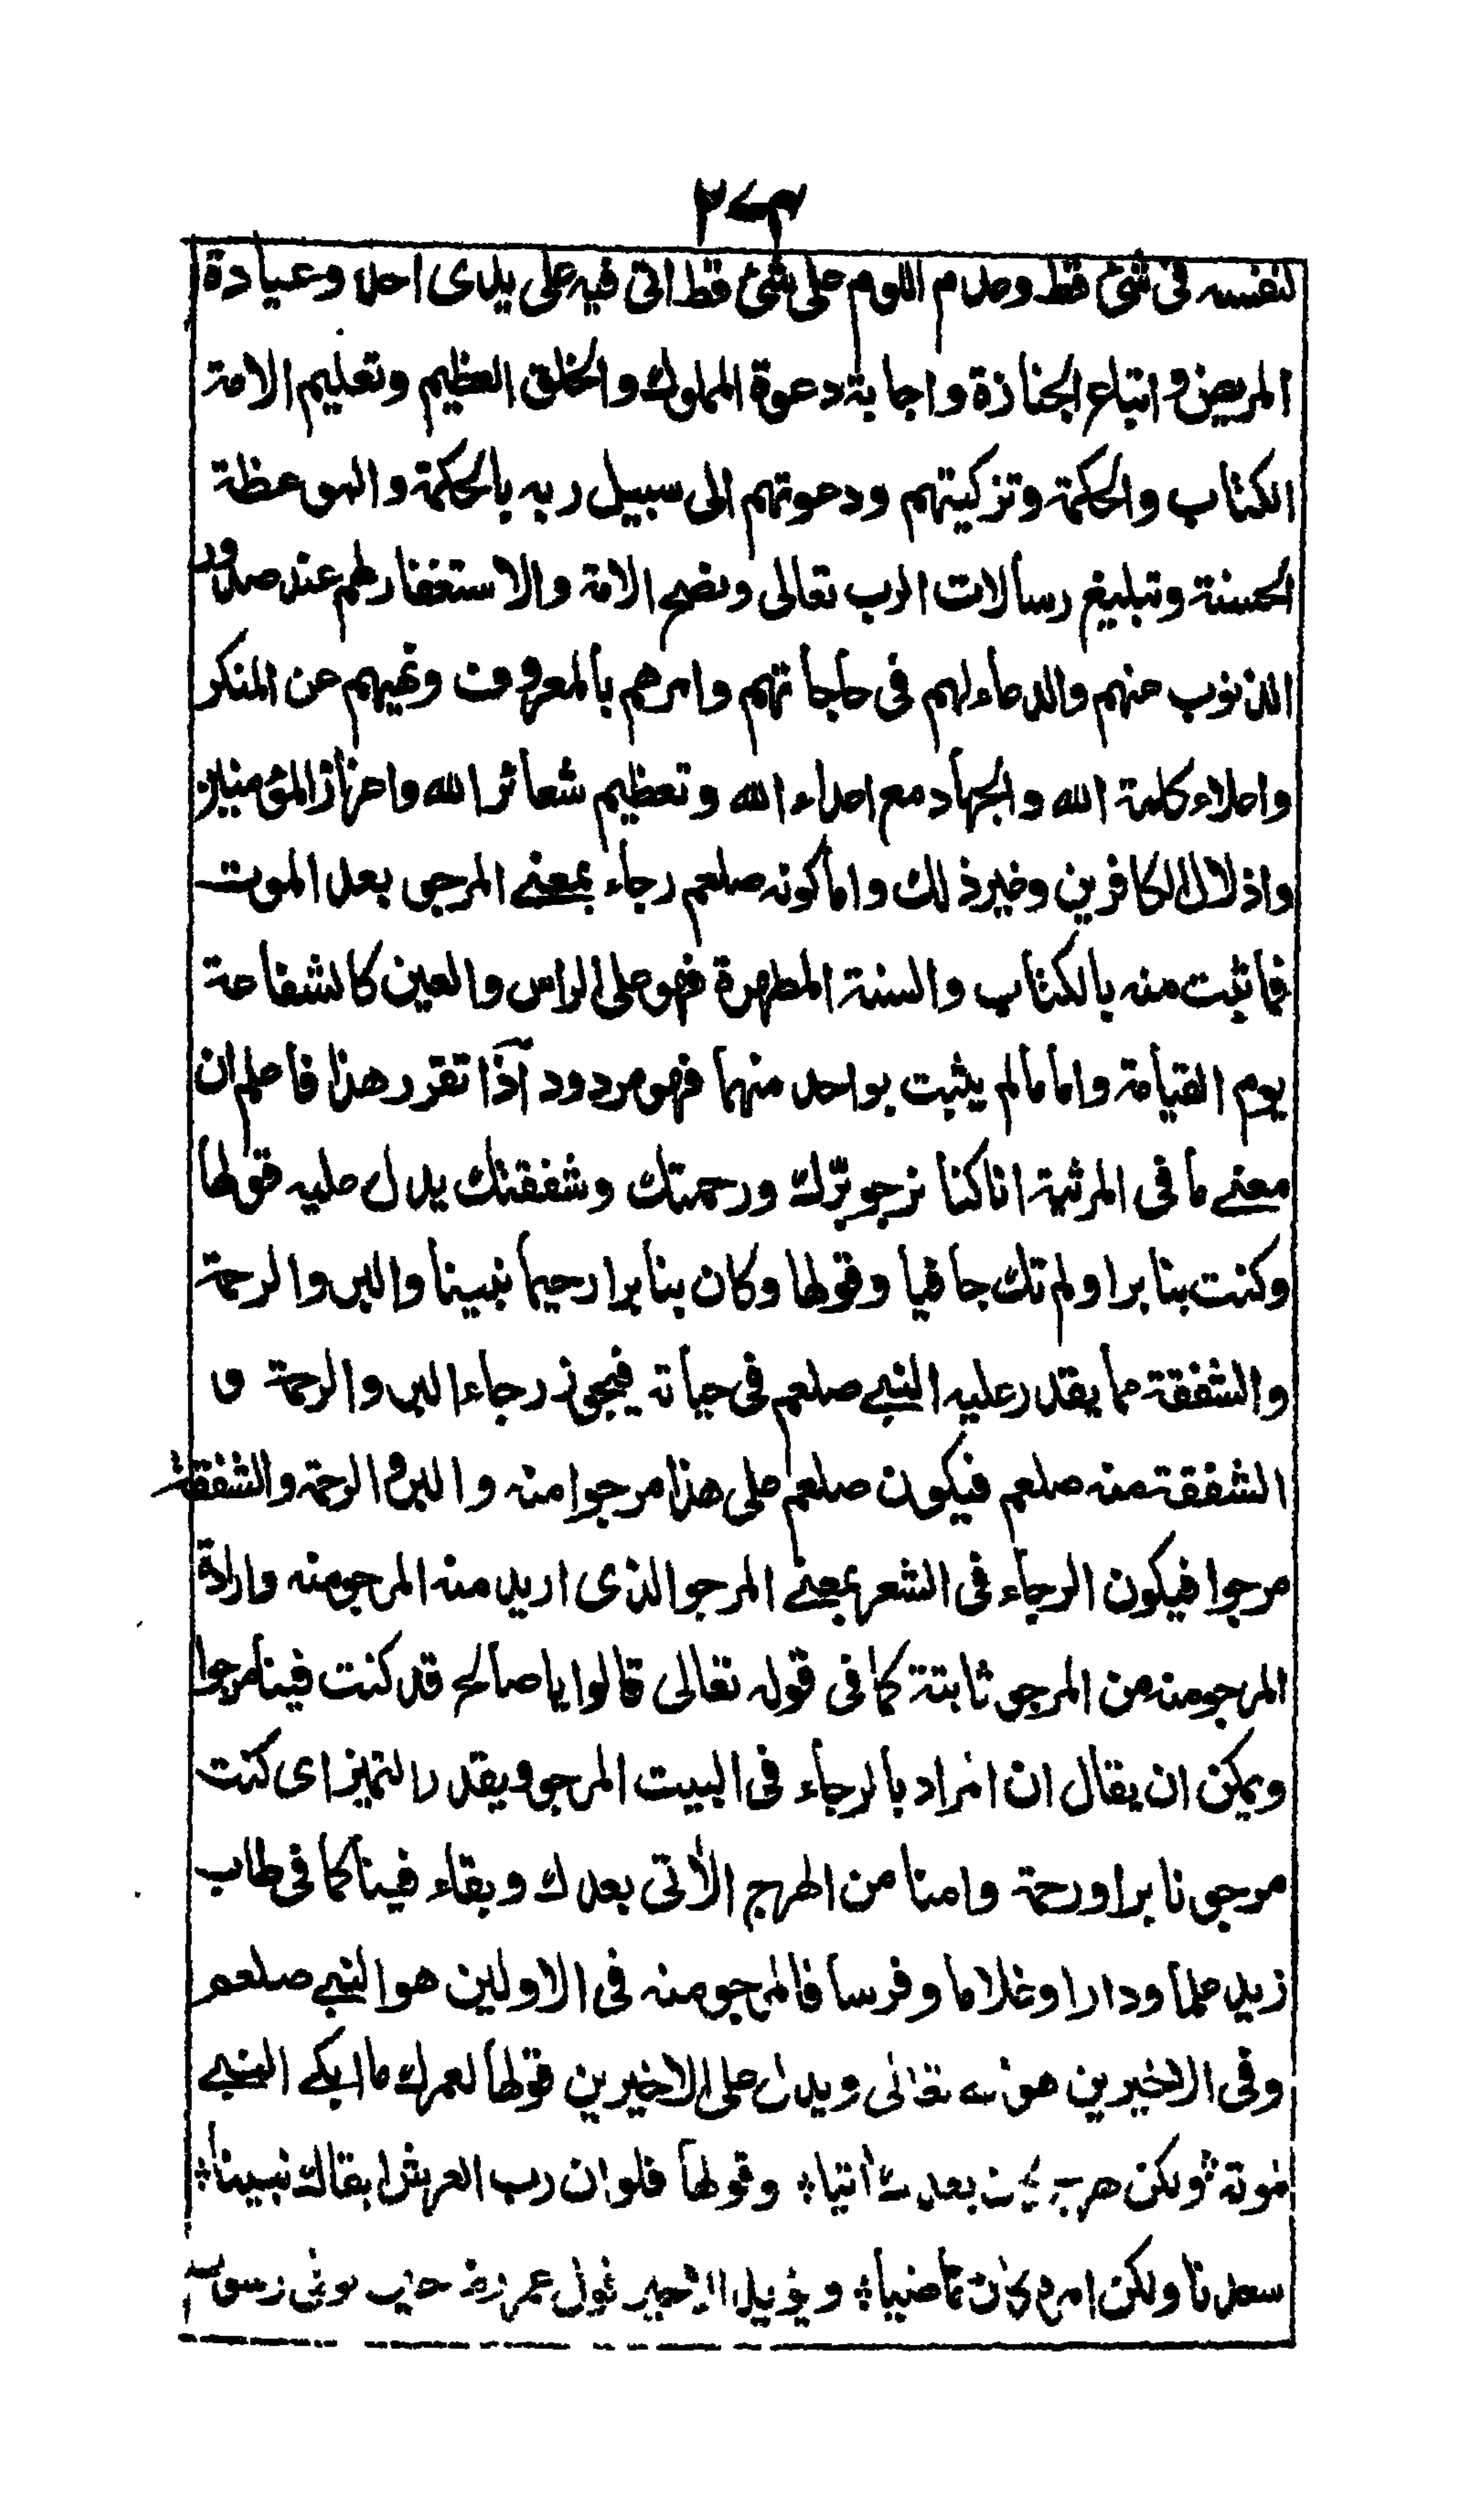 ٢٧٣
لنفسه فى شئ قط وعدم اللوم على شئ قط اتى فيه على يدى احد وعيادة
المريض و اتباع الجنازة واجابة دعوة المملوك والخلق العظيم وتعليم الامة
الكتاب والحكمة وتزكيتهم ودعوتهم الى سبيل ربه بالحكمة والموعظة
الحسنة وتبليغ رسالات الرب تعالى ونصح الامة والاستغفار لهم عند صدور
الذنوب منهم والدعاء لهم فى حاجاتهم وامرهم بالمعروف ونهيهم عن المنكر
واعلاء كلمة الله والجهاد مع اعداء الله وتعظيم شعائر الله واعزاز المؤمنين
واذلال الكافرين وغير ذلك واما كونه صلعم رجاء بمعنے المرجى بعد الموت
فما ثبت منه بالكتاب والسنة المطهرة فهو على الراس والعين كالشفاعة
يوم القيامة واما ما لم يثبت بواحد منهما فهو مردود آذا تقرر هذا فاعلم ان
معنے ما فى المرثية انا كنا نرجو برّك ورحمتك وشفقتك يدل عليه قولها
وكنت بنا برا ولم تك جافيا وقولها وكان بنا برا رحيما نبينا والبر والرحمة
والشفقة مما يقدر عليه النبے صلعم فى حياته فيجوز رجاء البر والرحمة و
الشفقة منه صلعم فيكون صلعم على هذا مرجوا منه والبر و الرحمة والشفقة
مرجوا فيكون الرجاء فى الشعر بمعنے المرجو الذى اريد منه المرجو منه وارادة
المرجو منه من المرجو ثابتة كما فى قوله تعالى قالوا يا صالح قد كنت فينا مرجوا
ويمكن ان يقال ان المراد بالرجاء فى البيت المرجو ويقدر التميز اى كنت
مرجونا برا ورحمة وامنا من الهرج الآتى بعدك وبقاء فينا كما فى طاب
زيد علما ودارا وغلاما وفرسا فالمرجو منه فى الاولين هو النبے صلعم
وفى الاخيرين هو الله تعالى ويدل على الاخيرين قولها لعمرك ما ابكے النبے
لموته ؞ ولكن هرج بعدك اتيا؞ وقولها فلو ان رب العرش ابقاك نبينا؞
سعدنا ولكن امره كان ماضيا؞ ويؤيد الاخير قول عمر رضه حين توفى رسول